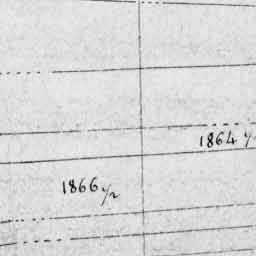 1864
1866 1/2